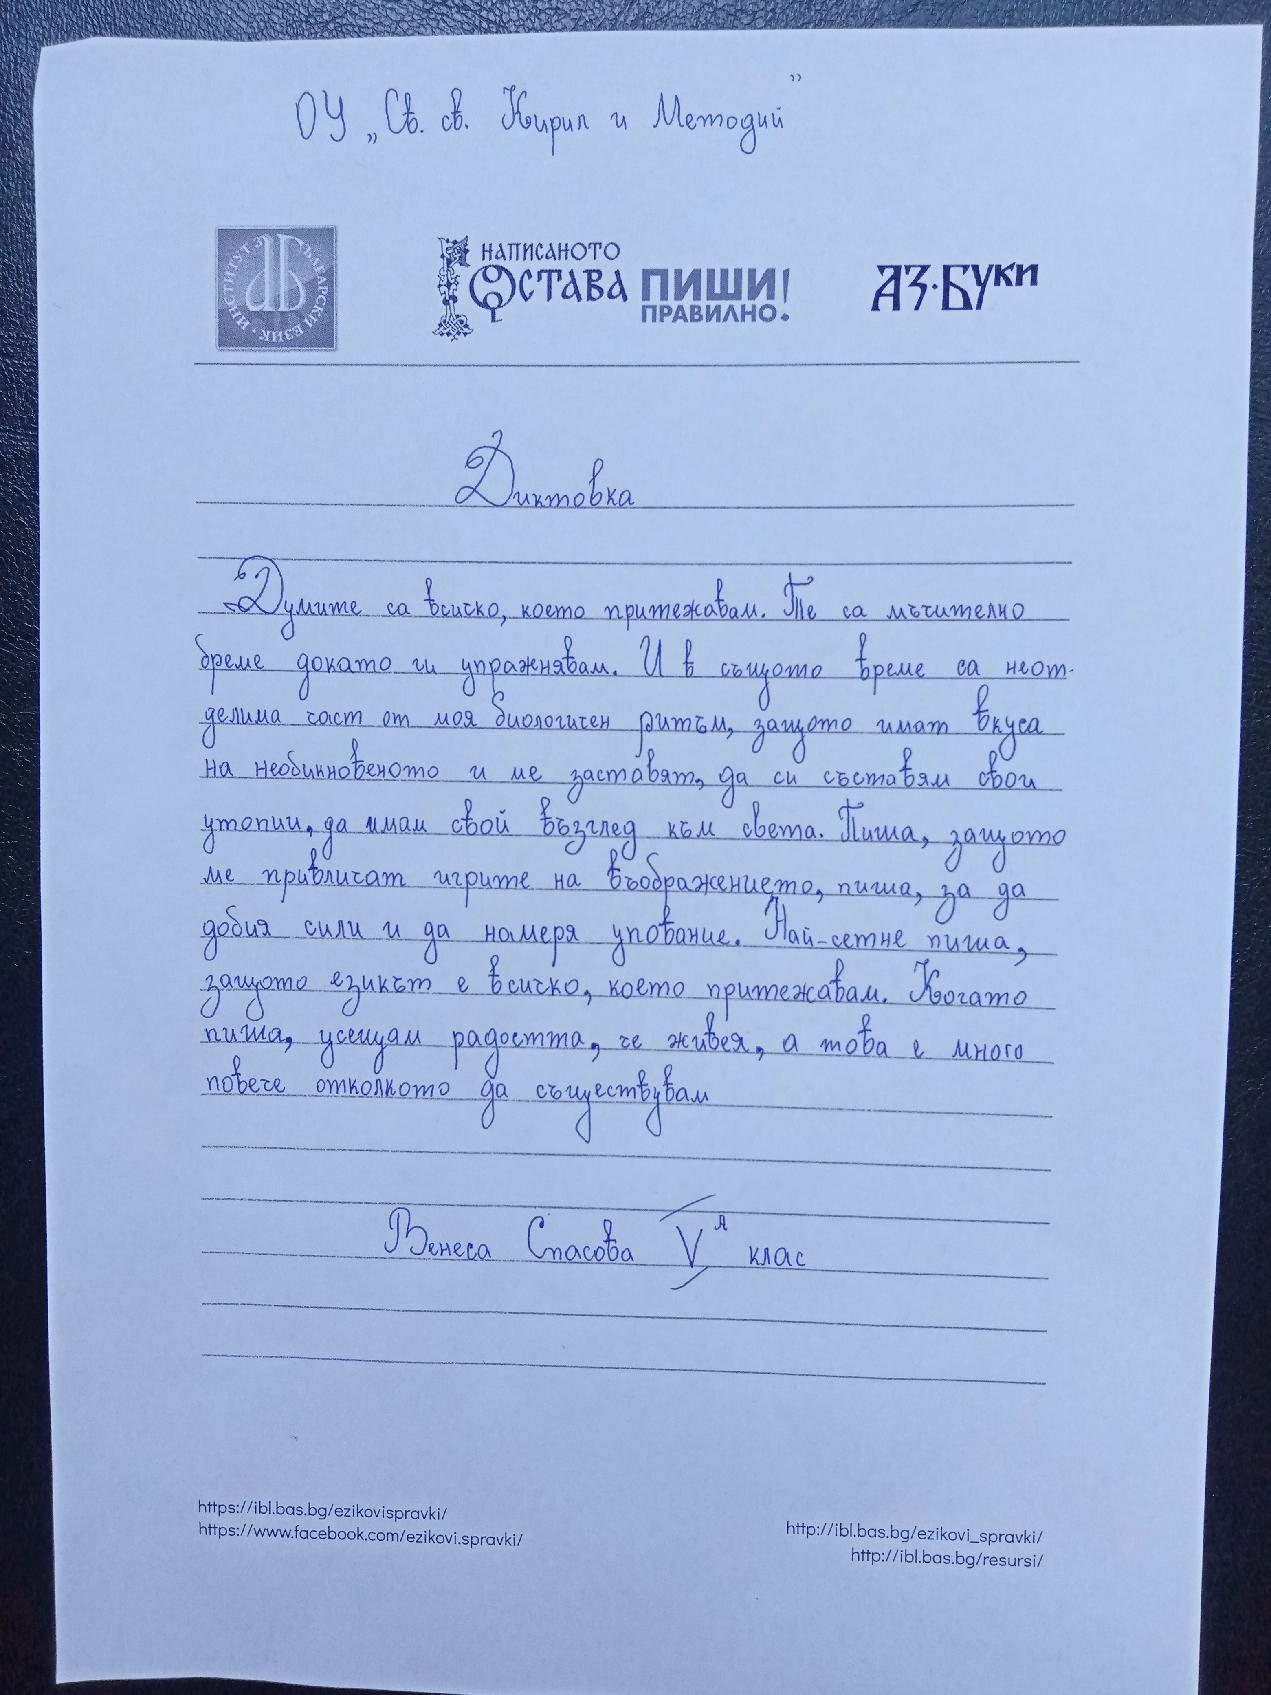 ОУ „Св. св. Кирил и Методий”
ИНСТИТУТ ЗА БЪЛГАРСКИ ЕЗИК
НАПИСАНОТО
ОСТАВА ПИШИ!
ПРАВИЛНО.
АЗ·БУКИ
Диктовка
Думите са всиско, което притежавам. Те са мъчително
бреме докато ги упражнявам. И в същото време са неот-
делима част от моя биологичен ритъм, защото имат вкуса
на необикновеното и ме заставят, да си съставям свои
утопии, да имам свой възглед към света. Пиша, защото
ме привличат игрите на въображението, пиша, за да
добия сили и да намеря упование. Най-сетне пиша,
защото езикът е всиско, което притежавам. Когато
пиша, усещам радостта, че живея, а това е много
повече отколкото да съществувам
Венеса Спасова V А клас
https://ibl.bas.bg/ezikovispravki/
https://www.facebook.com/ezikovi.spravki/
http://ibl.bas.bg/ezikovi_spravki/
http://ibl.bas.bg/resursi/